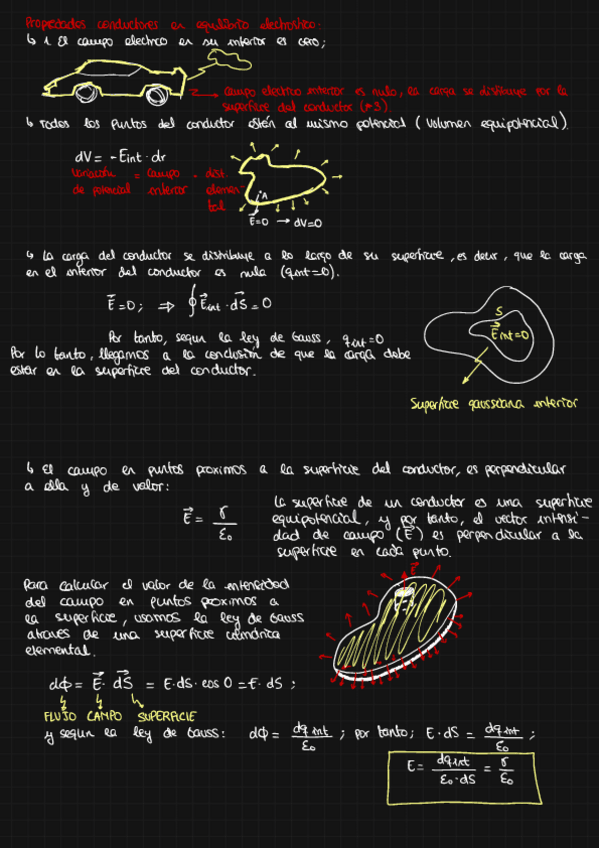 Propiedades conductores en equilibrio electrostático:
↳ 1. El campo electrico en su interior es cero;
→ campo electrico interior es nulo, la carga se distibuye por la
superficie del conductor (*3).
↳ Todos los puntos del conductor están al mismo potencial (Volumen equipotencial).
dV = - Eint · dr
Variación = campo · dist.
de potencial interior elemen-
tal
A
E⃗=0 → dV=0
↳ La carga del conductor se distribuye a lo largo de su superficie, es decir, que la carga
en el interior del conductor es nula (qint=0).
E⃗=0; ⇒ ∮E⃗int · dS⃗ = 0
S
E⃗int=0
Por tanto, segun la ley de Gauss, qint=0
Por lo tanto, llegamos a la conclusión de que la carga debe
estar en la superficie del conductor.
Superficie gaussiana interior
↳ El campo en puntos proximos a la superficie del conductor, es perpendicular
a ella y de valor:
E⃗ = γ/ε₀
La superficie de un conductor es una superficie
equipotencial, y por tanto, el vector intensi-
dad de campo (E⃗) es perpendicular a la
superficie en cada punto.
Para calcular el valor de la intensidad
del campo en puntos proximos a
la superficie, usamos la ley de Gauss
atraves de una superficie cilindrica
elemental.
E⃗
dϕ = E⃗ · dS⃗ = E·dS·cos 0 = E·dS ;
FLUJO CAMPO SUPERFICIE
y segun la ley de Gauss: dϕ = dqint/ε₀ ; por tanto; E·dS = dqint/ε₀ ;
E = dqint/ε₀·dS = γ/ε₀